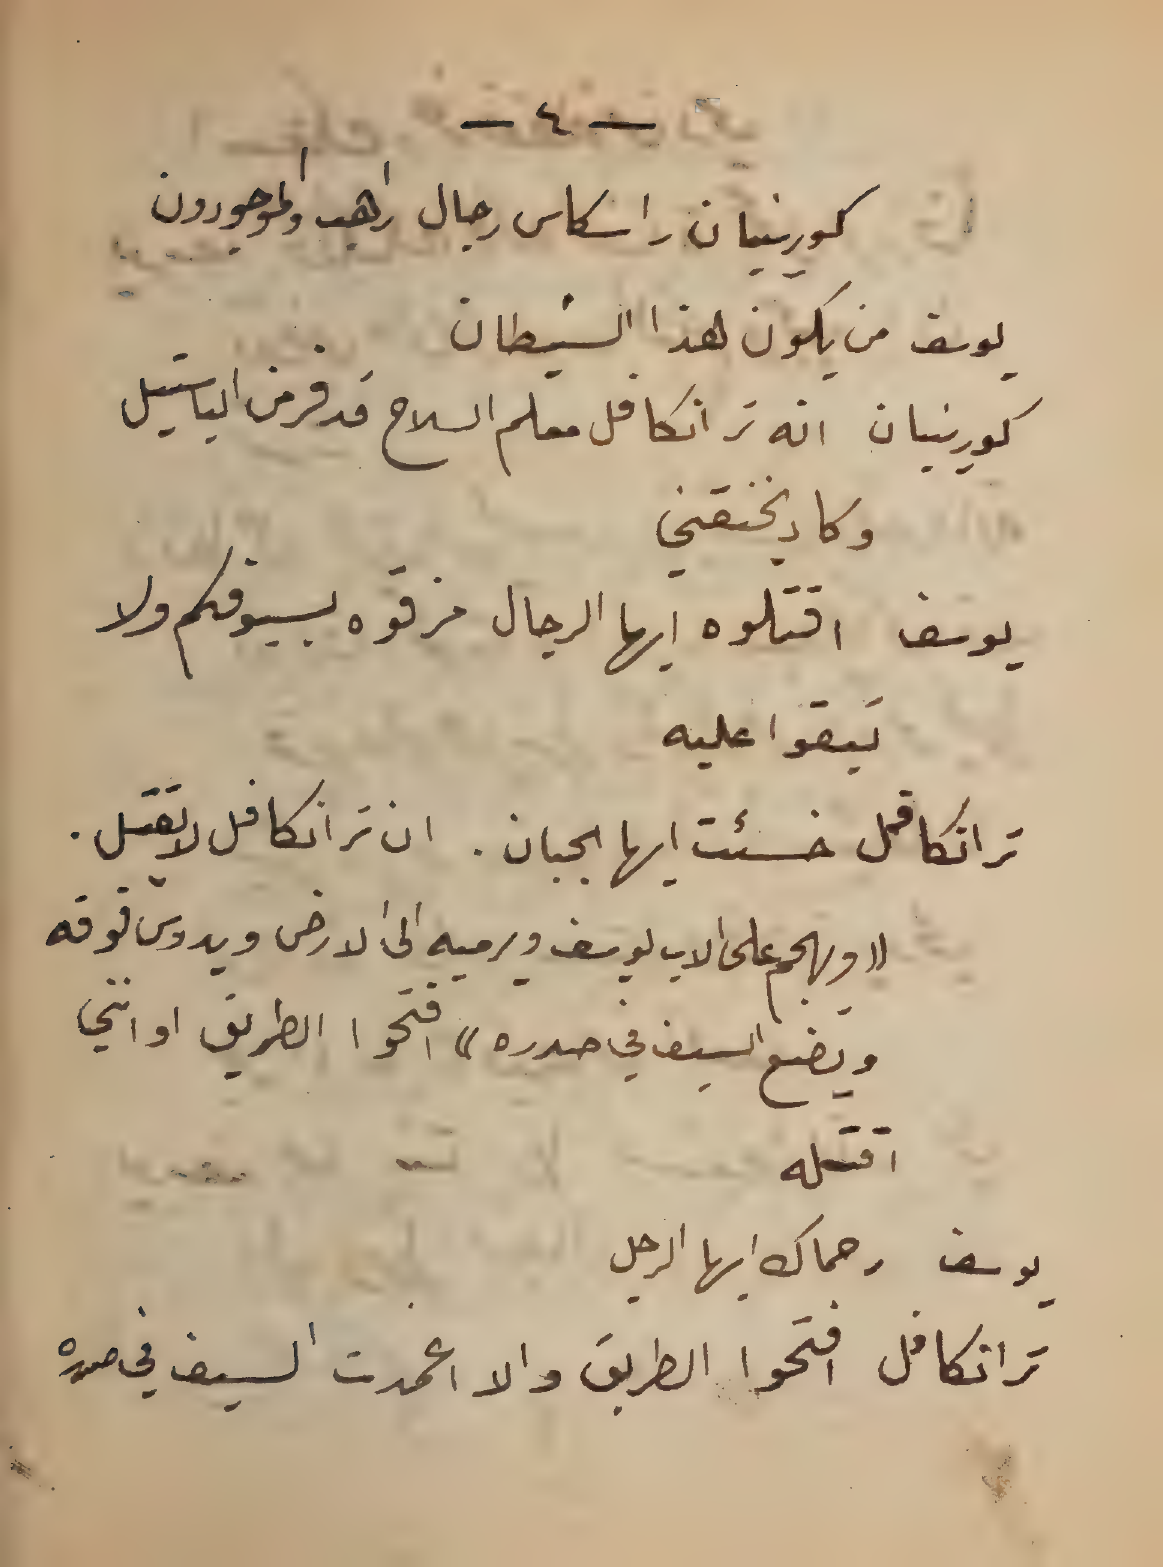 — ٤ —
كورنيان راسكاس رجال راهب والموجودون
يوسف من يكون هذا الشيطان
كورنيان انه ترانكافل معلم السلاح قد فر من الباستيل
وكاد يخنقني
يوسف اقتلوه ايها الرجال مزقوه بسيوفكم ولا
تبقوا عليه
ترانكافل خسئت ايها الجبان . ان ترانكافل لا يقتل .
« ويهجم على الاب يوسف ويرميه الى الارض ويدوس فوقه
ويضع السيف في صدره » افتحوا الطريق او انني
اقتله
يوسف رحماك ايها الرجل
ترانكافل افتحوا الطريق والا اغمدت السيف في صدره